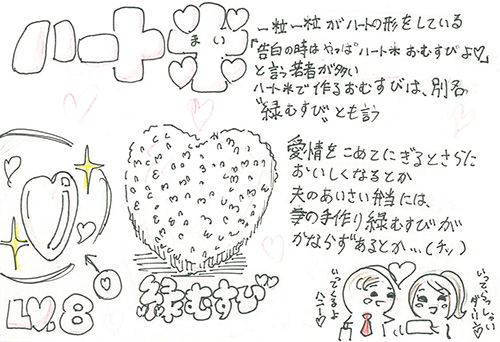 ハート米
まい
一粒一粒がハートの形をしている
「告白の時はやっぱ°ハート米おむすびよ♡」
と言う若者が多い
ハート米で作るおむすびは、別名
"縁むすび"とも言う
愛情をこめてにぎるとさらに
おいしくなるとか
夫のあいさい弁当には、
妻の手作り縁むすびが
かならずあるとか…(チッ)
LV.8
縁むすび
いってくるよ
ハニー♡
いってらっしゃい
ダーリン♡